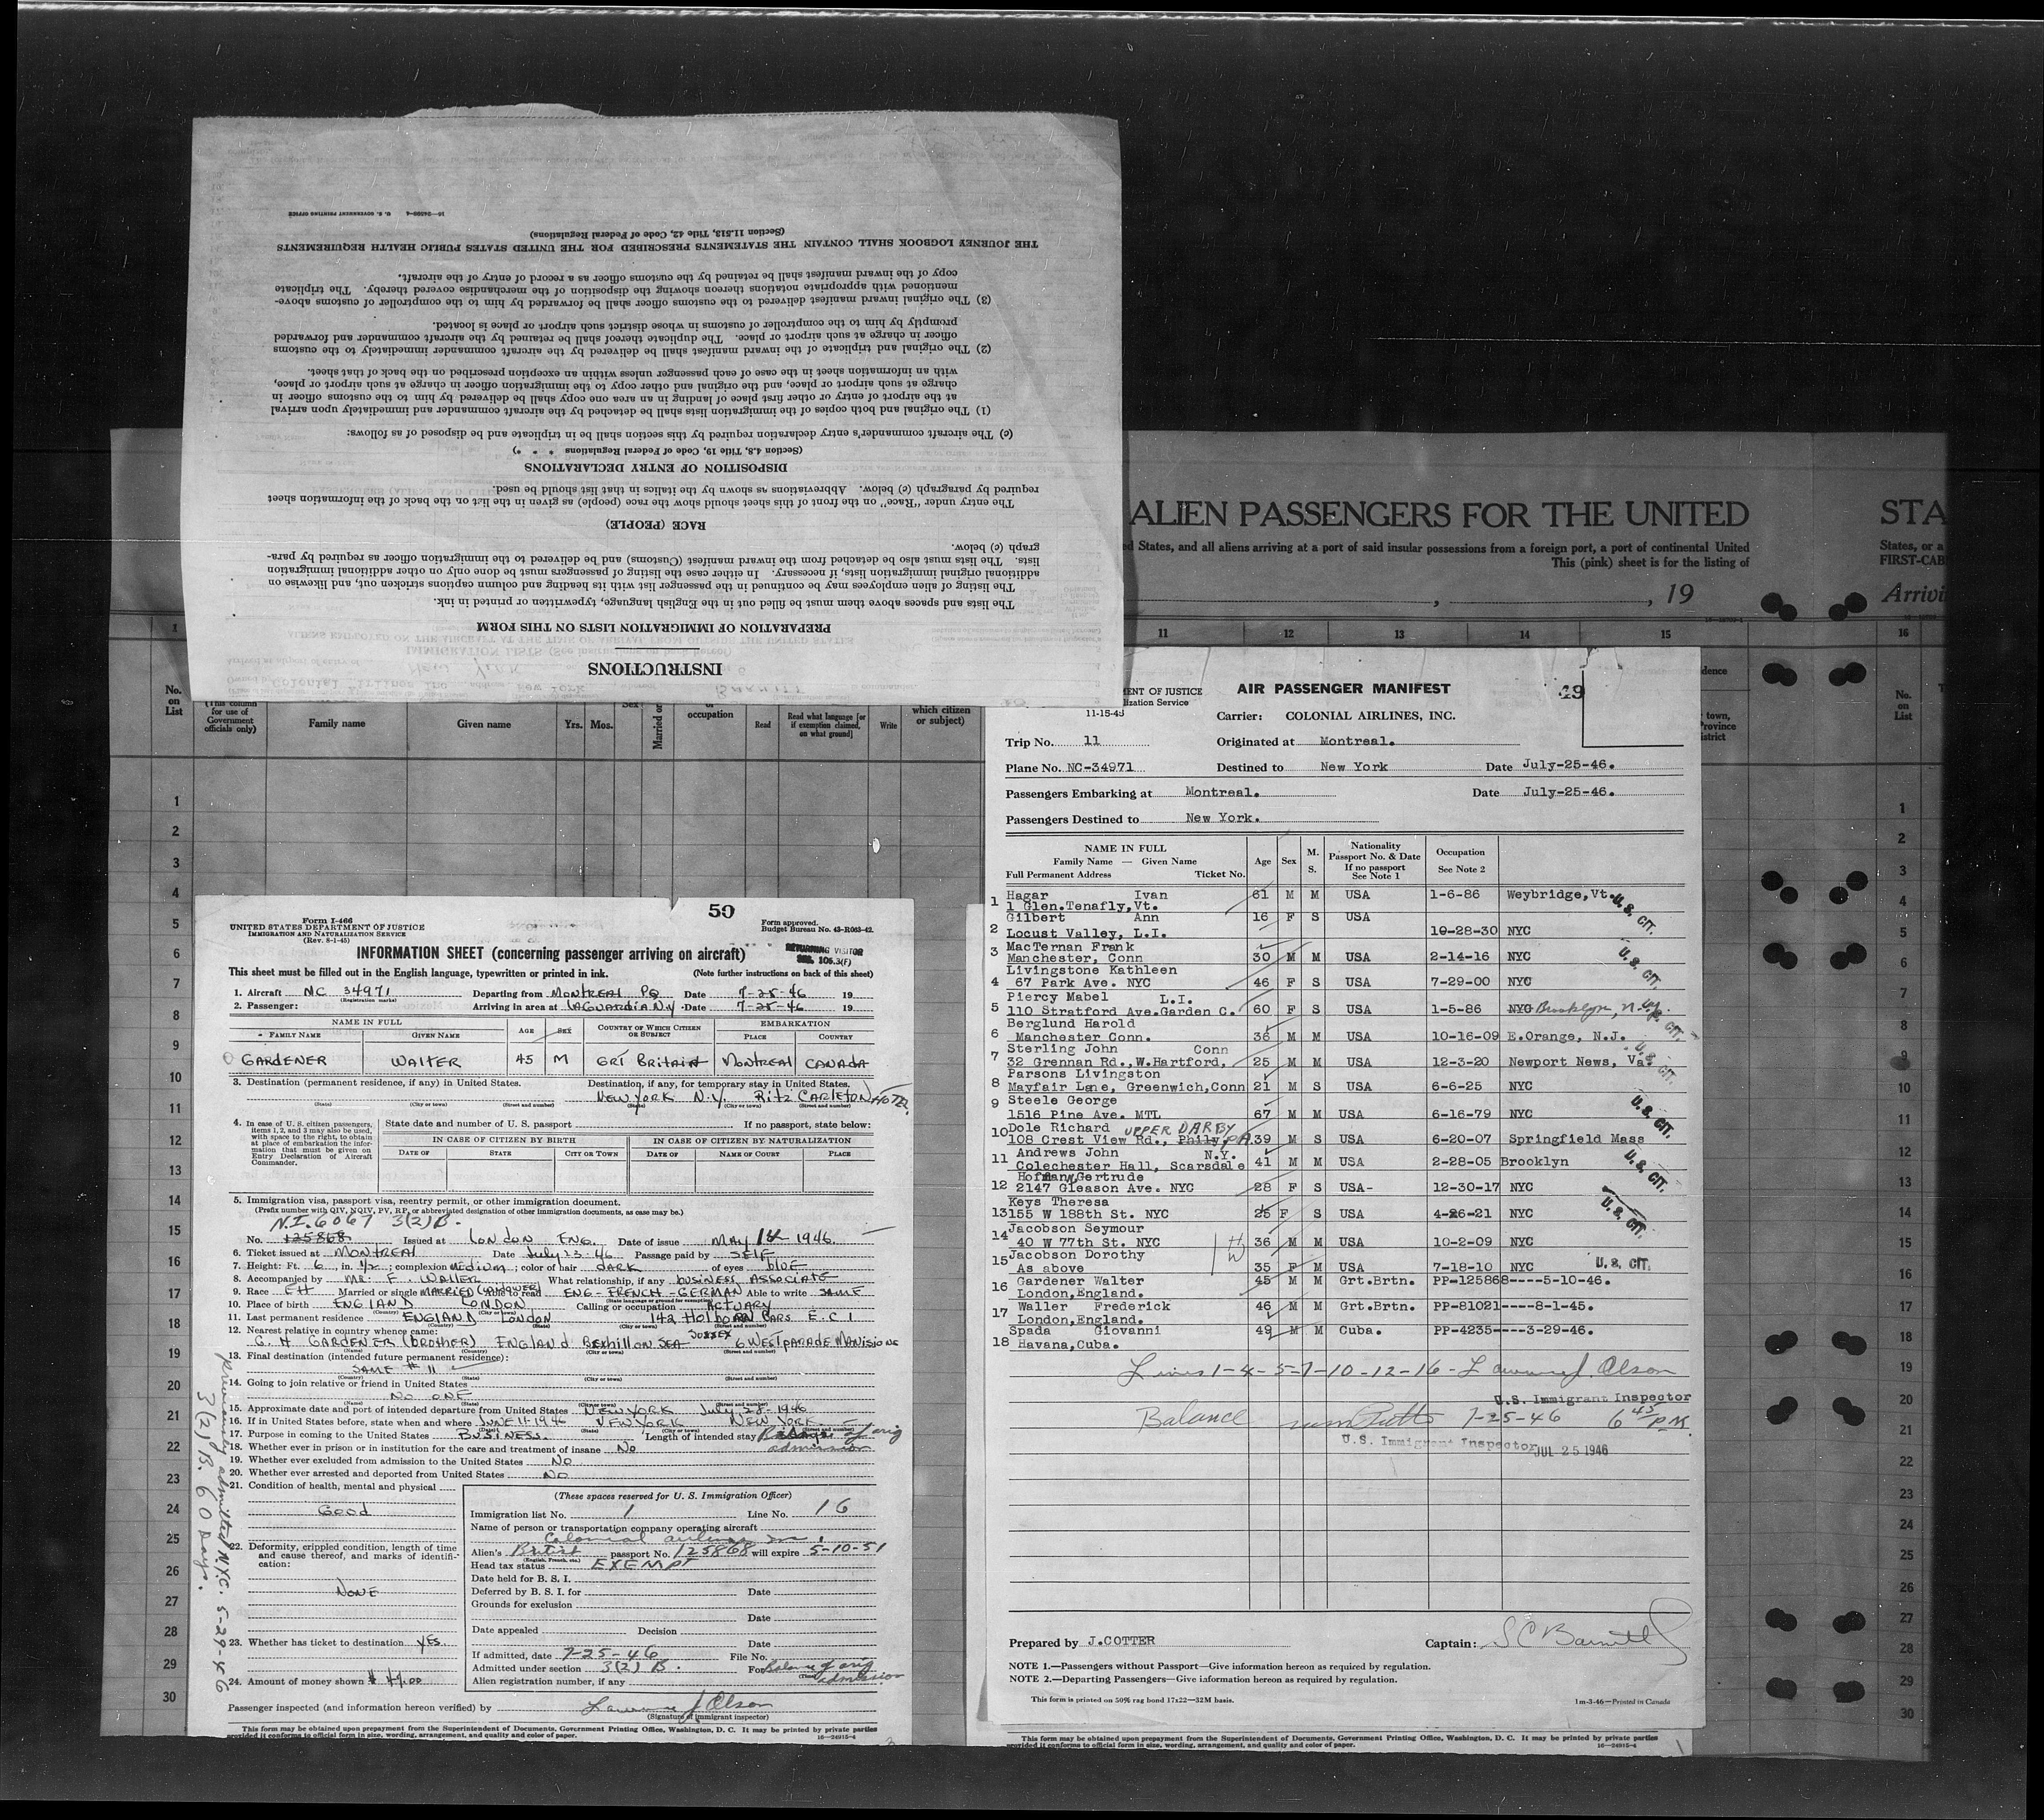 INSTRUCTIONS
PREPARATION OF IMMIGRATION LISTS ON THIS FORM
The lists and spaces above them must be filled out in the English language, typewritten or printed in ink.
The listing of alien employees may be continued in the passenger list with its heading and column captions stricken out, and likewise on
additional original immigration lists, if necessary. In either case the listing of passengers must be done only on other additional immigration
lists. The lists must also be detached from the inward manifest (Customs) and be delivered to the immigration officer as required by para-
graph (c) below.
RACE (PEOPLE)
The entry under "Race" on the front of this sheet should show the race (people) as given in the list on the back of the information sheet
required by paragraph (c) below. Abbreviations as shown by the italics in that list should be used.
DISPOSITION OF ENTRY DECLARATIONS
(Section 4.8, Title 19, Code of Federal Regulations * * *)
(c) The aircraft commander's entry declaration required by this section shall be in triplicate and be disposed of as follows:
(1) The original and both copies of the immigration lists shall be detached by the aircraft commander and immediately upon arrival
at the airport of entry or other first place of landing in an area one copy shall be delivered by him to the customs officer in
charge at such airport or place, and the original and other copy to the immigration officer in charge at such airport or place,
with an information sheet in the case of each passenger unless within an exception prescribed on the back of that sheet.
(2) The original and triplicate of the inward manifest shall be delivered by the aircraft commander immediately to the customs
officer in charge at such airport or place. The duplicate thereof shall be retained by the aircraft commander and forwarded
promptly by him to the comptroller of customs in whose district such airport or place is located.
(3) The original inward manifest delivered to the customs officer shall be forwarded by him to the comptroller of customs above-
mentioned with appropriate notations thereon showing the disposition of the merchandise covered thereby. The triplicate
copy of the inward manifest shall be retained by the customs officer as a record of entry of the aircraft.
THE JOURNEY LOGBOOK SHALL CONTAIN THE STATEMENTS PRESCRIBED FOR THE UNITED STATES PUBLIC HEALTH REQUIREMENTS
(Section 11.513, Title 42, Code of Federal Regulations)
U. S. GOVERNMENT PRINTING OFFICE
ALIEN PASSENGERS FOR THE UNITED
STA
ed States, and all aliens arriving at a port of said insular possessions from a foreign port, a port of continental United
States, or a
This (pink) sheet is for the listing of
FIRST-CAB
, 19
Arrivi
1 11 12 13 14 15 16
No. on List
(This column for use of Government officials only)
Family name
Given name
Yrs. Mos.
Sex
Married or
occupation
Read
Read what language [or if exemption claimed, on what ground]
Write
which citizen or subject)
No. on List
50
Form I-466
UNITED STATES DEPARTMENT OF JUSTICE
IMMIGRATION AND NATURALIZATION SERVICE
(Rev. 8-1-45)
Form approved.
Budget Bureau No. 43-R063-42.
INFORMATION SHEET (concerning passenger arriving on aircraft)
RETURNING VISITOR
SEC. 105.3(F)
This sheet must be filled out in the English language, typewritten or printed in ink. (Note further instructions on back of this sheet)
1. Aircraft NC 34971 Departing from MONTREAL PQ Date 7-25-46 19
(Registration marks)
2. Passenger: Arriving in area at LAGUARDIA N.Y. Date 7-25-46 19
NAME IN FULL AGE SEX COUNTRY OF WHICH CITIZEN OR SUBJECT EMBARKATION
FAMILY NAME GIVEN NAME PLACE COUNTRY
GARDENER WALTER 45 M GRT BRITAIN MONTREAL CANADA
3. Destination (permanent residence, if any) in United States. Destination, if any, for temporary stay in United States.
NEW YORK N.Y. Ritz CARLETON HOTEL
(State) (City or town) (Street and number) (State) (City or town) (Street and number)
4. In case of U. S. citizen passengers, items 1, 2, and 3 may also be used, with space to the right, to obtain at place of embarkation the information that must be given on Entry Declaration of Aircraft Commander.
State date and number of U. S. passport If no passport, state below:
IN CASE OF CITIZEN BY BIRTH IN CASE OF CITIZEN BY NATURALIZATION
DATE OF STATE CITY OR TOWN DATE OF NAME OF COURT PLACE
5. Immigration visa, passport visa, reentry permit, or other immigration document.
(Prefix number with QIV, NQIV, PV, RP, or abbreviated designation of other immigration documents, as case may be.)
N.I. 6067 3(2)B.
No. 125868 Issued at LONDON ENG. Date of issue MAY 1st 1946.
6. Ticket issued at MONTREAL Date July 23-46 Passage paid by SELF
7. Height: Ft. 6, in. 1/2; complexion MEDIUM; color of hair DARK of eyes bluE
8. Accompanied by MR. F. WALLER What relationship, if any business ASSOCIATE
9. Race EH Married or single MARRIED (WIDOWER) Able to read ENG - FRENCH - GERMAN Able to write SAME
10. Place of birth ENGLAND LONDON Calling or occupation ACTUARY
11. Last permanent residence ENGLAND London 142 Holborn BARS E.C 1
12. Nearest relative in country whence came:
G. H GARDENER (BROTHER) ENGLAND Bexhill on SEA SUSSEX 6 WEST PARADE MANSIONS
13. Final destination (intended future permanent residence):
SAME # 11
14. Going to join relative or friend in United States
NO ONE
15. Approximate date and port of intended departure from United States NEW YORK July 28-1946
16. If in United States before, state when and where JUNE 11-1946 NEW YORK NEW YORK
17. Purpose in coming to the United States BUSINESS. Length of intended stay Balance of orig admission
18. Whether ever in prison or in institution for the care and treatment of insane No
19. Whether ever excluded from admission to the United States No
20. Whether ever arrested and deported from United States No
21. Condition of health, mental and physical
Good
22. Deformity, crippled condition, length of time and cause thereof, and marks of identification:
NONE
23. Whether has ticket to destination YES
24. Amount of money shown
(These spaces reserved for U. S. Immigration Officer)
Immigration list No. 1 Line No. 16
Name of person or transportation company operating aircraft
Colonial airlines Inc.
Alien's British passport No. 125868 will expire 5-10-51
(English, French, etc.)
Head tax status EXEMPT
Date held for B. S. I.
Deferred by B. S. I. for Date
Grounds for exclusion
Date
Date appealed Decision
Date
If admitted, date 7-25-46 File No.
Admitted under section 3(2) B. For Balance of orig admission
Alien registration number, if any
Passenger inspected (and information hereon verified) by Lawrence J Olson
(Signature of immigrant inspector)
This form may be obtained upon prepayment from the Superintendent of Documents, Government Printing Office, Washington, D. C. It may be printed by private parties
provided it conforms to official form in size, wording, arrangement, and quality and color of paper. 16—24915-4
previously admitted N.Y.C. 5-29-46
3(2) B. 60 Days.
MENT OF JUSTICE
lization Service
11-15-45
AIR PASSENGER MANIFEST
49
Carrier: COLONIAL AIRLINES, INC.
Trip No. 11 Originated at Montreal.
Plane No. NC-34971 Destined to New York Date July-25-46.
Passengers Embarking at Montreal. Date July-25-46.
Passengers Destined to New York.
NAME IN FULL
Family Name — Given Name
Full Permanent Address Ticket No.
Age Sex M. S. Nationality Passport No. & Date If no passport See Note 1 Occupation See Note 2
1 Hagar Ivan 61 M M USA 1-6-86 Weybridge,Vt.
1 Glen.Tenafly,Vt.
U. S. CIT.
2 Gilbert Ann 16 F S USA
Locust Valley, L.I. 10-28-30 NYC
3 MacTernan Frank
Manchester, Conn 30 M M USA 2-14-16 NYC
U. S. CIT.
4 Livingstone Kathleen
67 Park Ave. NYC 46 F S USA 7-29-00 NYC
5 Piercy Mabel L.I.
110 Stratford Ave.Garden C. 60 F S USA 1-5-86 NYC Brooklyn, N.Y.
6 Berglund Harold
Manchester Conn. 36 M M USA 10-16-09 E.Orange, N.J.
7 Sterling John Conn
32 Grennan Rd.,W.Hartford, 25 M M USA 12-3-20 Newport News, Va.
U. S. CIT.
8 Parsons Livingston
Mayfair Lane, Greenwich,Conn 21 M S USA 6-6-25 NYC
9 Steele George
1516 Pine Ave. MTL 67 M M USA 6-16-79 NYC
U. S. CIT.
10 Dole Richard UPPER DARBY
108 Crest View Rd., Phily, PA. 39 M S USA 6-20-07 Springfield Mass
11 Andrews John N.Y.
Colechester Hall, Scarsdale 41 M M USA 2-28-05 Brooklyn
U. S. CIT.
12 Hofmann,Gertrude
2147 Gleason Ave. NYC 28 F S USA- 12-30-17 NYC
13 Keys Theresa
155 W 188th St. NYC 25 F S USA 4-26-21 NYC
U. S. CIT.
14 Jacobson Seymour
40 W 77th St. NYC 36 M M USA 10-2-09 NYC
15 Jacobson Dorothy
As above 35 F M USA 7-18-10 NYC
U. S. CIT.
16 Gardener Walter 45 M M Grt.Brtn. PP-125868----5-10-46.
London,England.
17 Waller Frederick 46 M M Grt.Brtn. PP-81021----8-1-45.
London,England.
18 Spada Giovanni 49 M M Cuba. PP-4235----3-29-46.
Havana,Cuba.
Lines 1-4-5-7-10-12-16- Lawrence J. Olson
U.S. Immigrant Inspector
Balance 7-25-46 6 45 P.M.
U.S. Immigrant Inspector JUL 25 1946
Prepared by J.COTTER Captain:
NOTE 1.—Passengers without Passport—Give information hereon as required by regulation.
NOTE 2.—Departing Passengers—Give information hereon as required by regulation.
This form is printed on 50% rag bond 17x22—32M basis. 1m-3-46—Printed in Canada
This form may be obtained upon prepayment from the Superintendent of Documents, Government Printing Office, Washington, D. C. It may be printed by private parties
provided it conforms to official form in size, wording, arrangement, and quality and color of paper. 16—24915-4